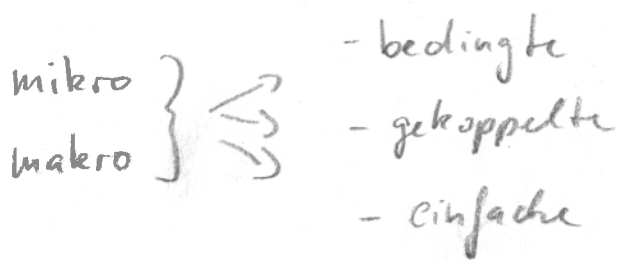 mikro
makro
- bedingte
- gekoppelte
- einfache